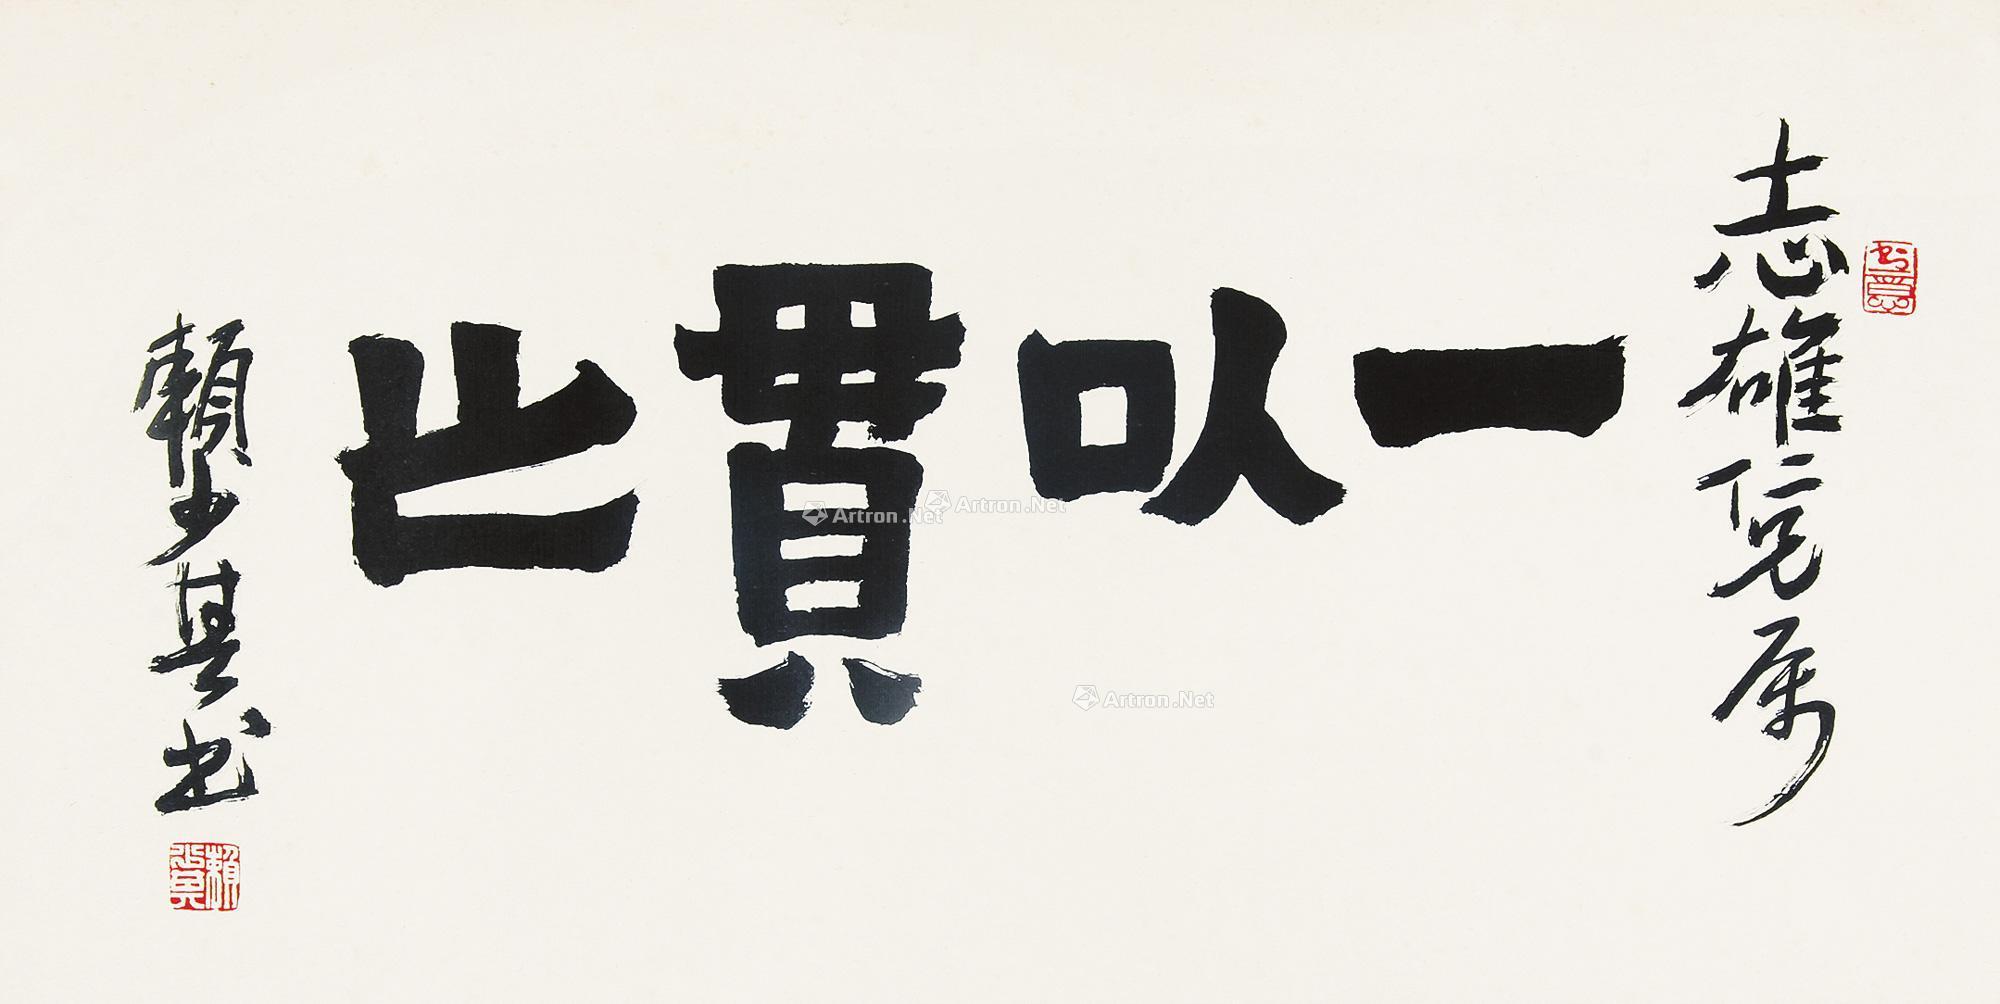 志雄仁兄属
一以貫之
賴少其书
賴少其
Artron.Net
Artron.Net
Artron.Net